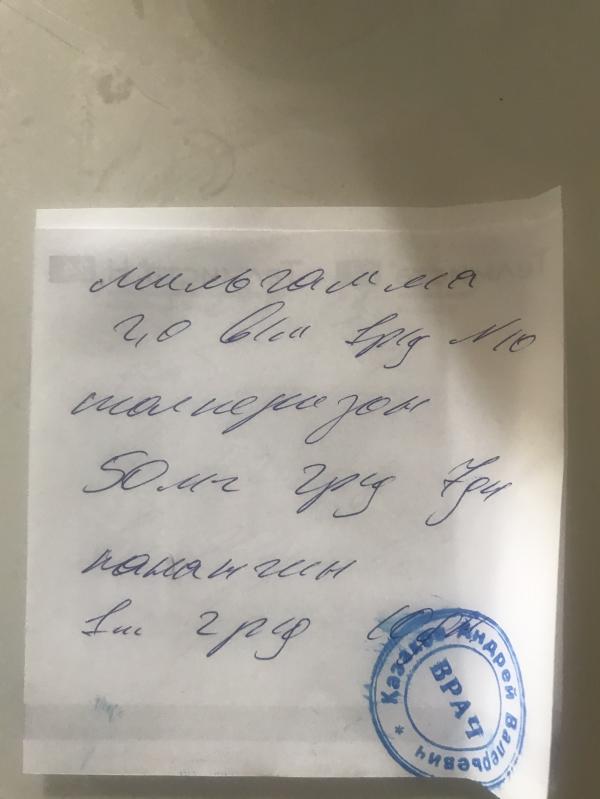 мильгамма
2,0 в/м 1р/д N10
толперизон
50мг 2р/д 7дн
панангин
1т 2р/д 10дн
Казаков Андрей Валерьевич *
ВРАЧ